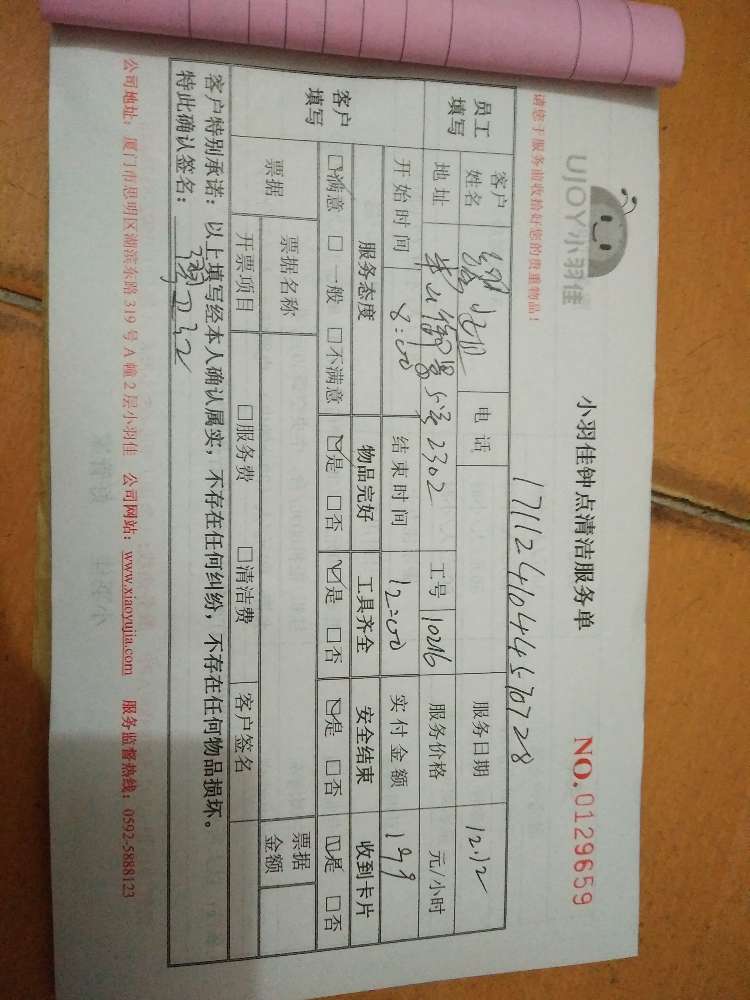 UJOY小羽佳
请您于服务前收拾好您的贵重物品！
小羽佳钟点清洁服务单
NO.0129659
1711241044570728
员工填写 客户姓名 电话 服务日期 12.12
地址 半山御景 2302 工号 10216 服务价格 元/小时
开始时间 8:00 结束时间 12:00 实付金额 199
客户填写 服务态度 物品完好 工具齐全 安全结束 收到卡片
☑满意 □一般 □不满意 ☑是 □否 ☑是 □否 ☑是 □否 ☑是 □否
票据 票据名称 票据金额
开票项目 □服务费 □清洁费 客户签名
客户特别承诺：以上填写经本人确认属实，不存在任何纠纷，不存在任何物品损坏。
特此确认签名：
公司地址：厦门市思明区湖滨东路319号A幢2层小羽佳 公司网站：www.xiaoyujia.com 服务监督热线：0592-5888123